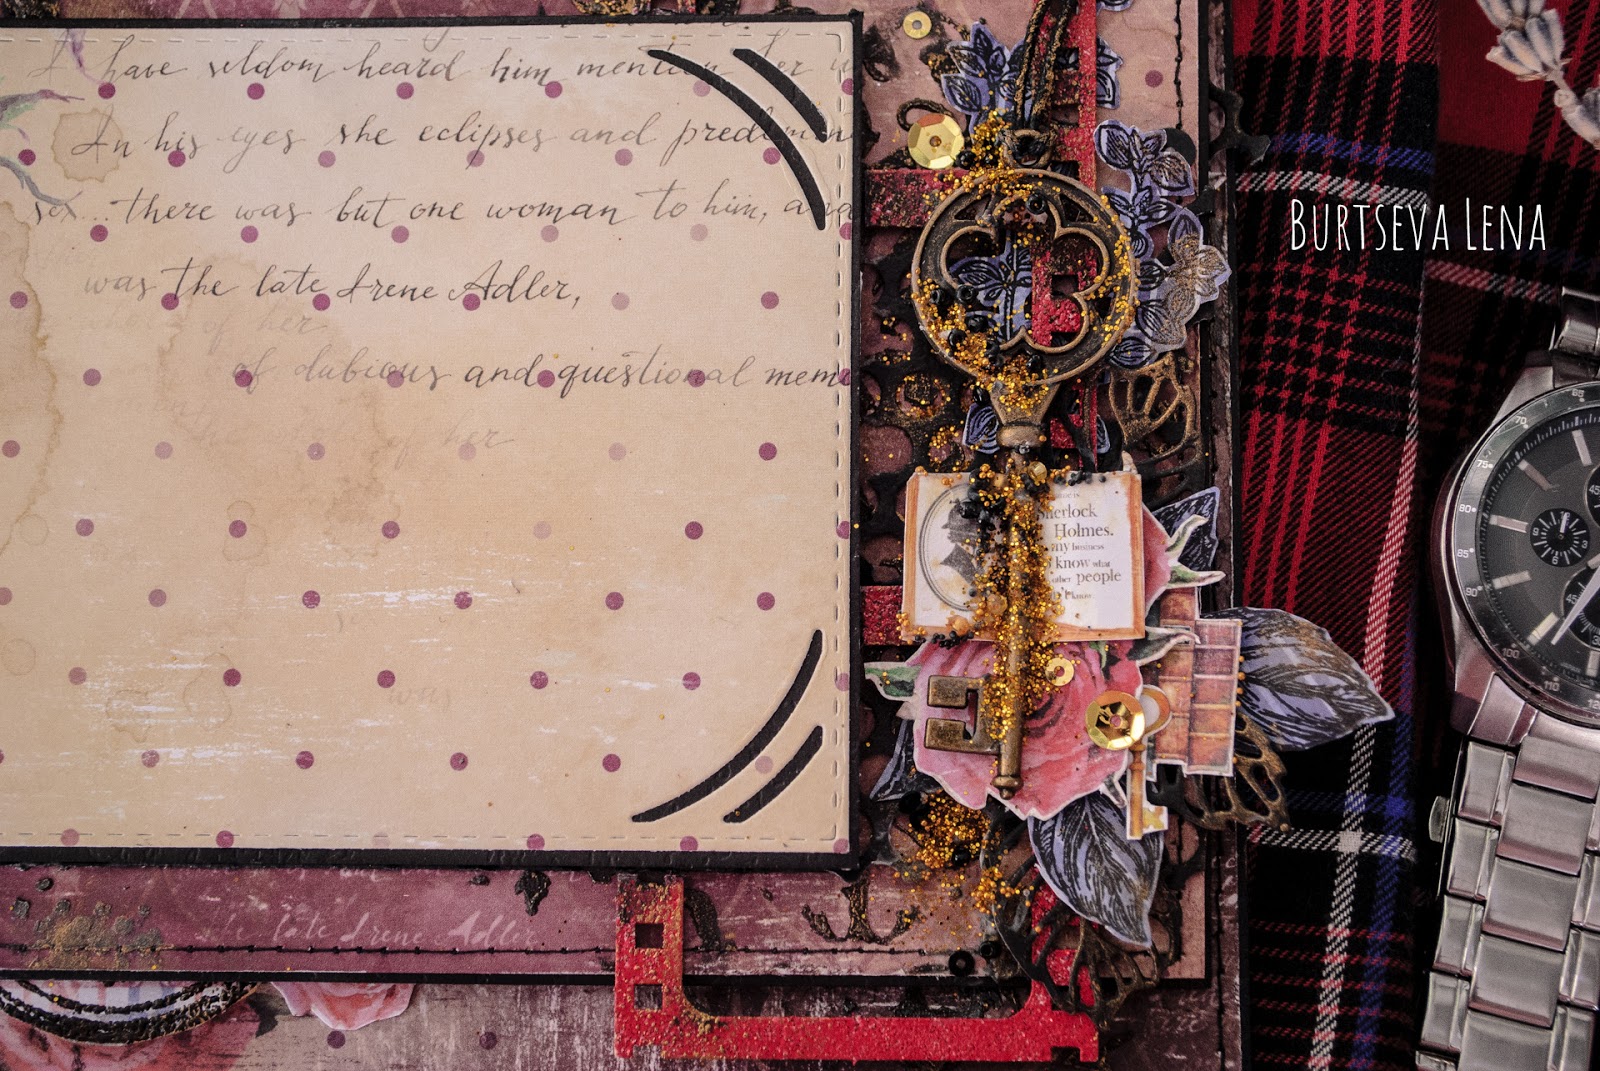 I have seldom heard him mention her
In his eyes she eclipses and predomin
sex... there was but one woman to him, and
was the late Irene Adler,
of her
of dubious and questional mem
of her
was
Sherlock
Holmes.
my business
know what
other people
know
the late Irene Adler
BURTSEVA LENA